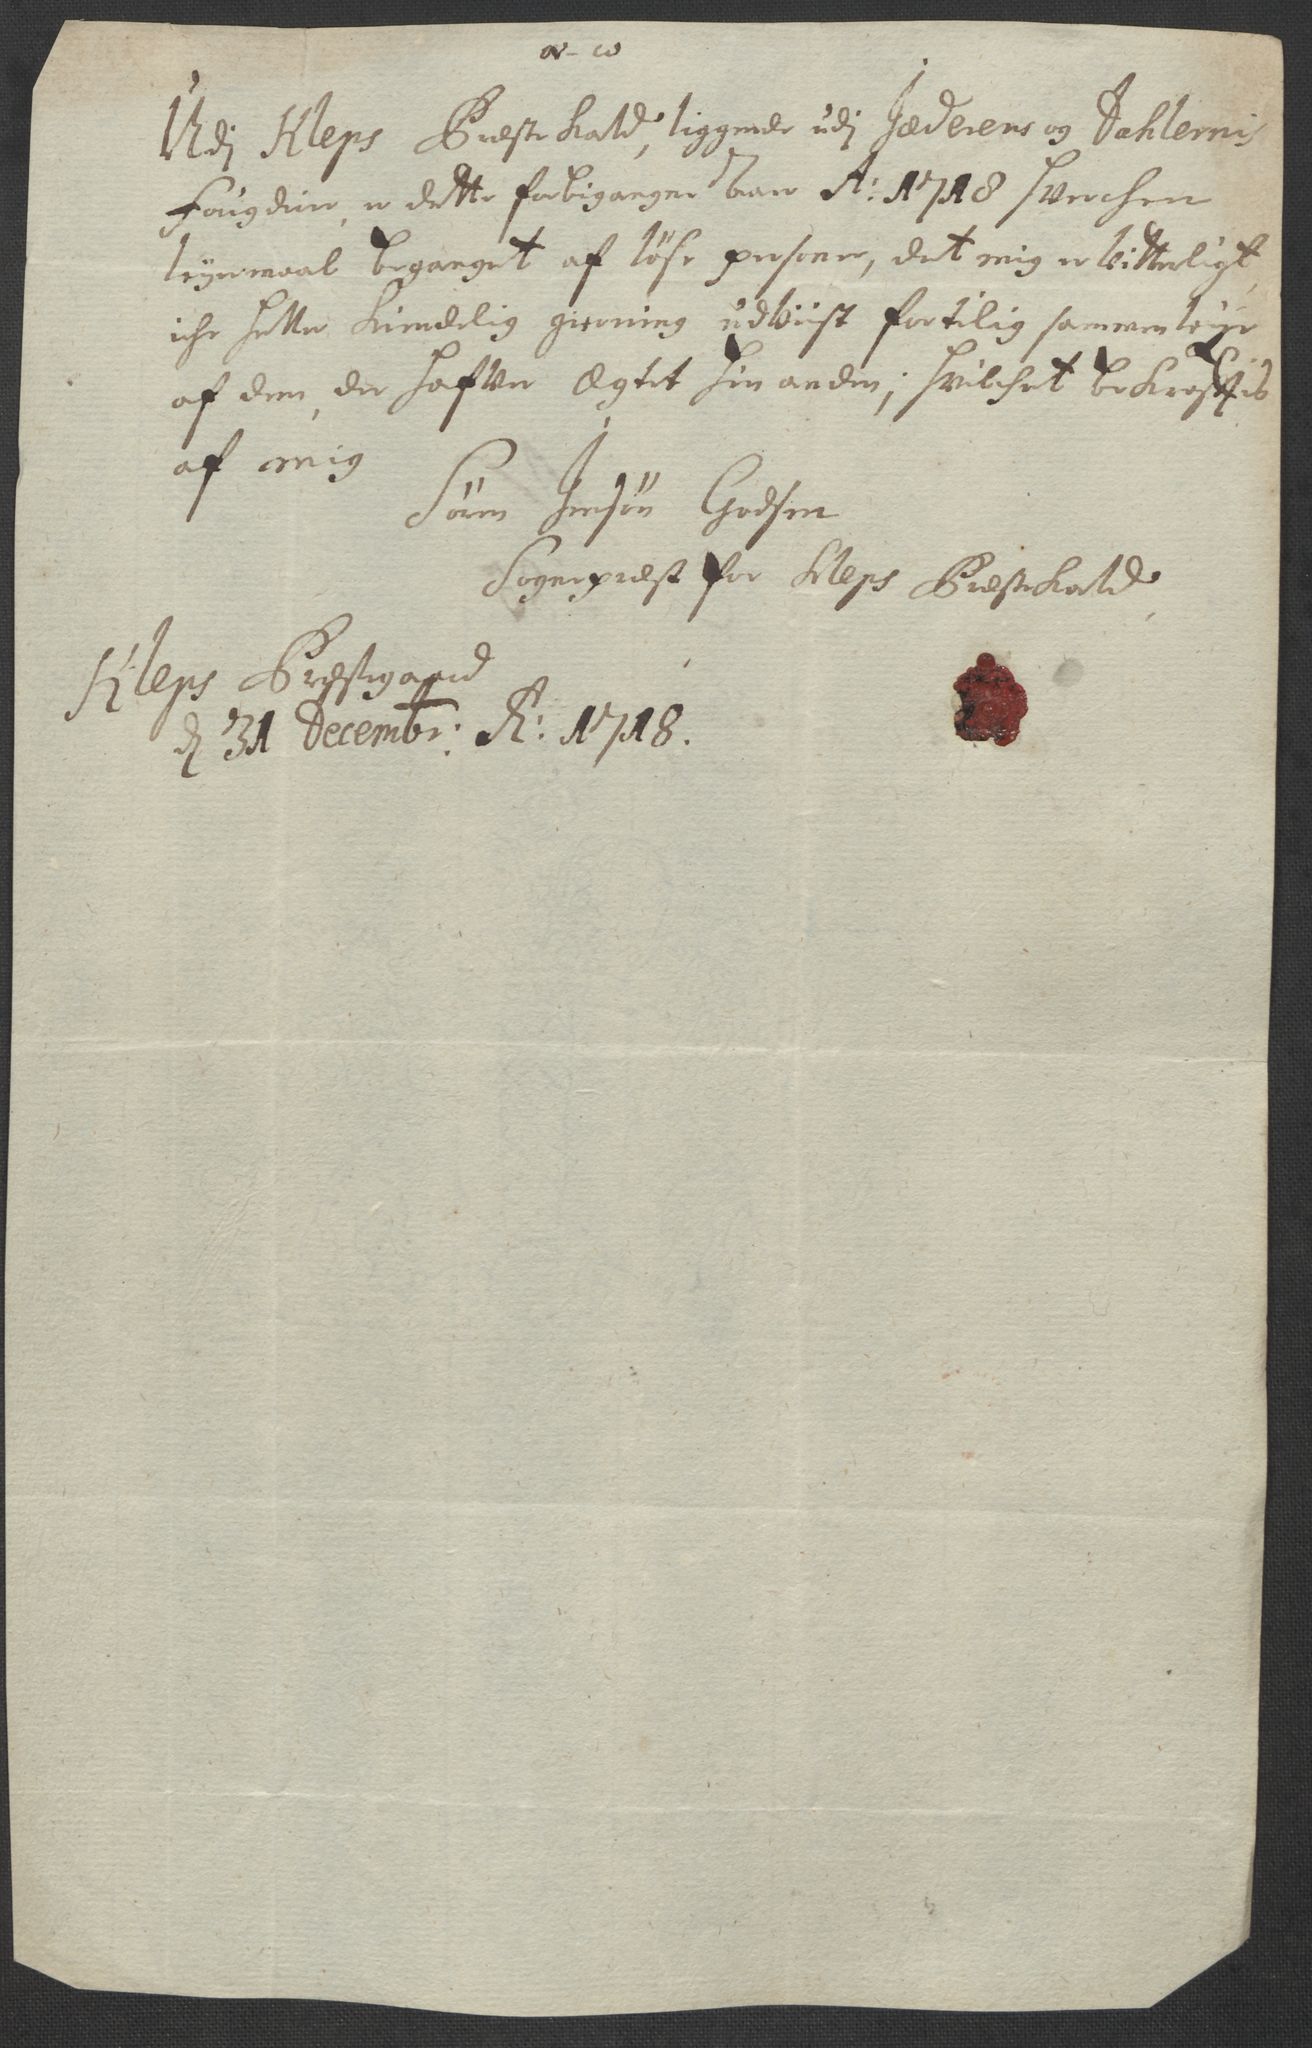 α – ω
Udj Kleps Præste Kald, liggende udj Jæderens og Dahlernis
Fougderie, er dette forbigangne aar A: 1718 hverchen
leyermaal beganget af löse personer, det mig er vitterligt,
iche heller Kiendelig gierning udviist fortilig sammenleye
af dem, der hafver Ægtet hin anden; hvilchet bekræftis
af mig
Sören Jensön Godsen
Sogneprest for Kleps Præste Kald
Kleps Præstegaard
d 31 Decembr: A: 1718.